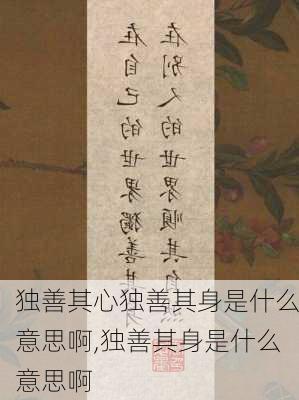 在别人的世界順其自然
在自己的世界獨善其身
独善其心独善其身是什么
意思啊,独善其身是什么
意思啊